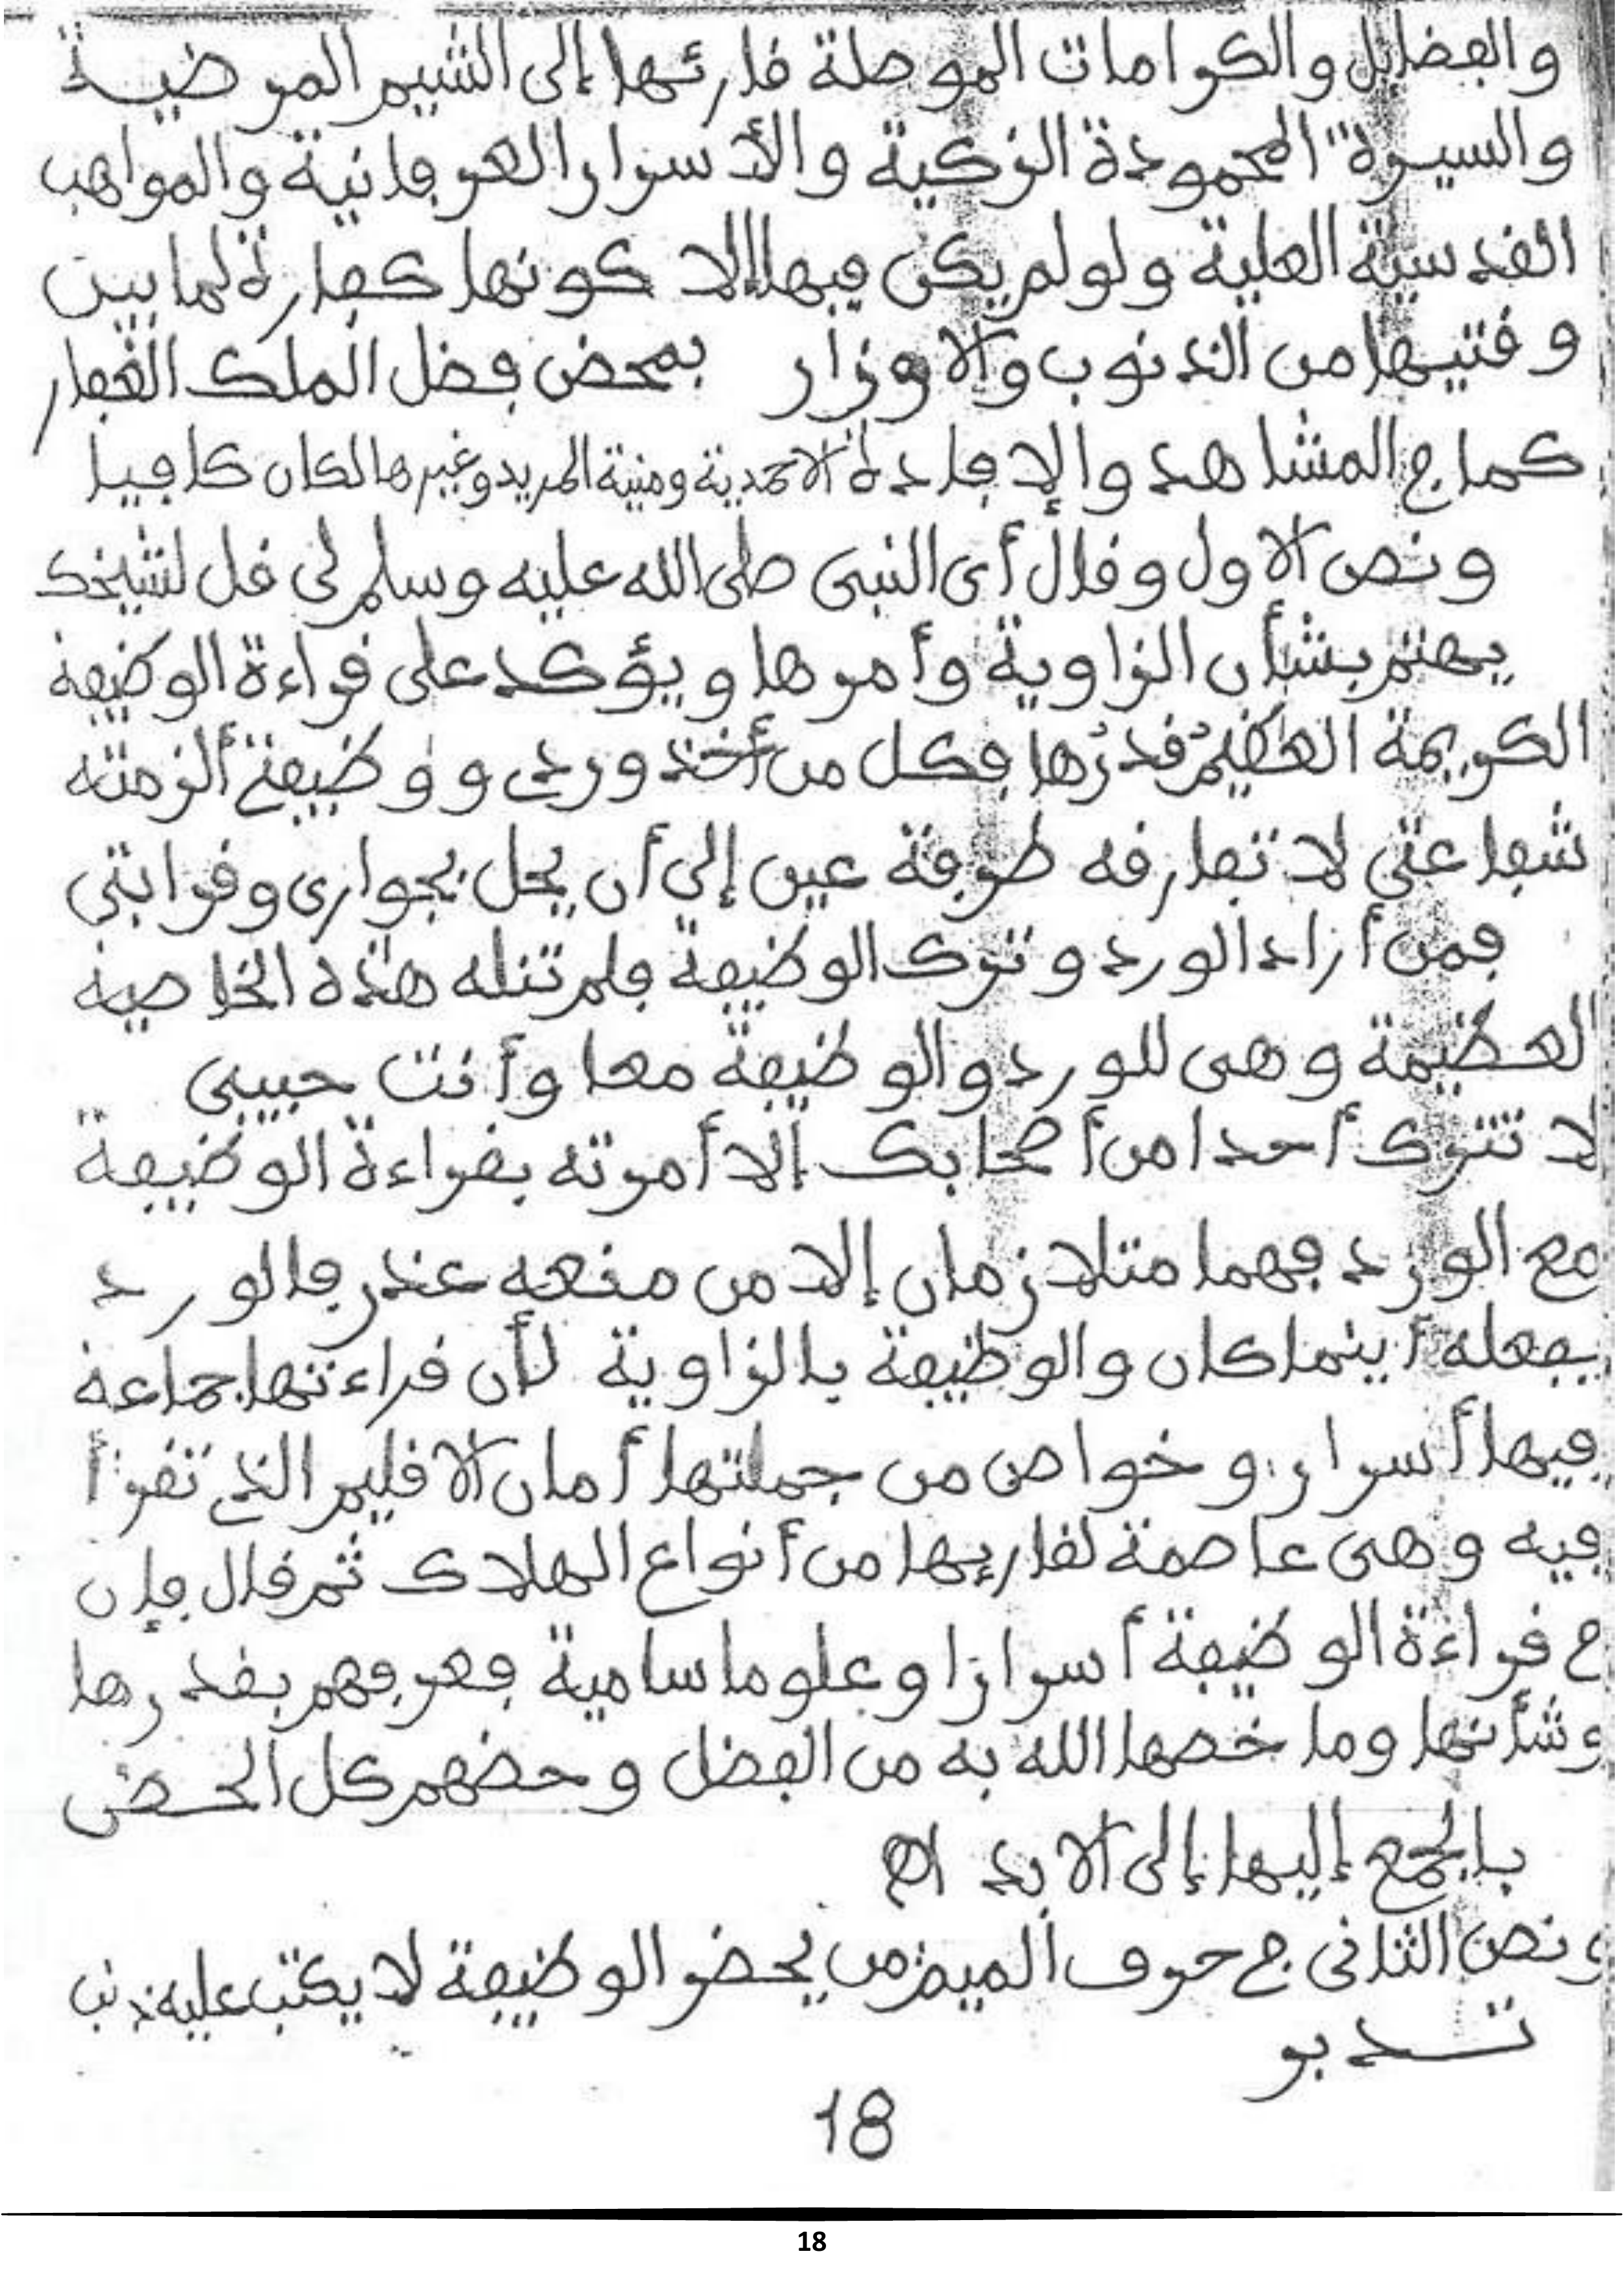 والفضايل والكرامات الموصلة قارئها إلى الشيم المرضية
والسيرة المحمودة الزكية والأسرار العرفانية والمواهب
القدسية العلية ولو لم يكن فيها إلا كونها كفارة لما بين
وقتيها من الذنوب والأوزار بمحض فضل الملك الغفار
كما في المشاهد والإفادة الأحمدية ومنية المريد وغيرها لكان كافيا
ونص الأول وقال أي النبي صلى الله عليه وسلم لي قل لشيخك
يهتم بشأن الزاوية وأمرها ويؤكد على قراءة الوظيفة
الكريمة العظيم قدرها فكل من أخذ وردي ووظيفتي ألزمته
شفاعتي لا تفارقه طرفة عين إلى أن يحل بجواري وقرابتي
فمن أراد الورد وترك الوظيفة فلم تنله هذه الخاصية
العظيمة وهي للورد والوظيفة معا وأنت حبيبي
لا تترك أحدا من أصحابك إلا أمرته بقراءة الوظيفة
مع الورد فهما متلازمان إلا من منعه عذر فالورد
يفعله أينما كان والوظيفة بالزاوية لأن قراءتها جماعة
فيها أسرار وخواص من جملتها أمان الاقليم الذي تقرأ
فيه وهي عاصمة لقاريها من أنواع الهلاك ثم قال فإن
في قراءة الوظيفة أسرارا وعلوما سامية فعرفهم بقدرها
وشأنها وما خصها الله به من الفضل وحضهم كل الحض
بالجمع إليها إلى الأبد اه
ونص الثاني في حرف الميم من يحضر الوظيفة لا يكتب عليه ذنب
تدبر
18
18